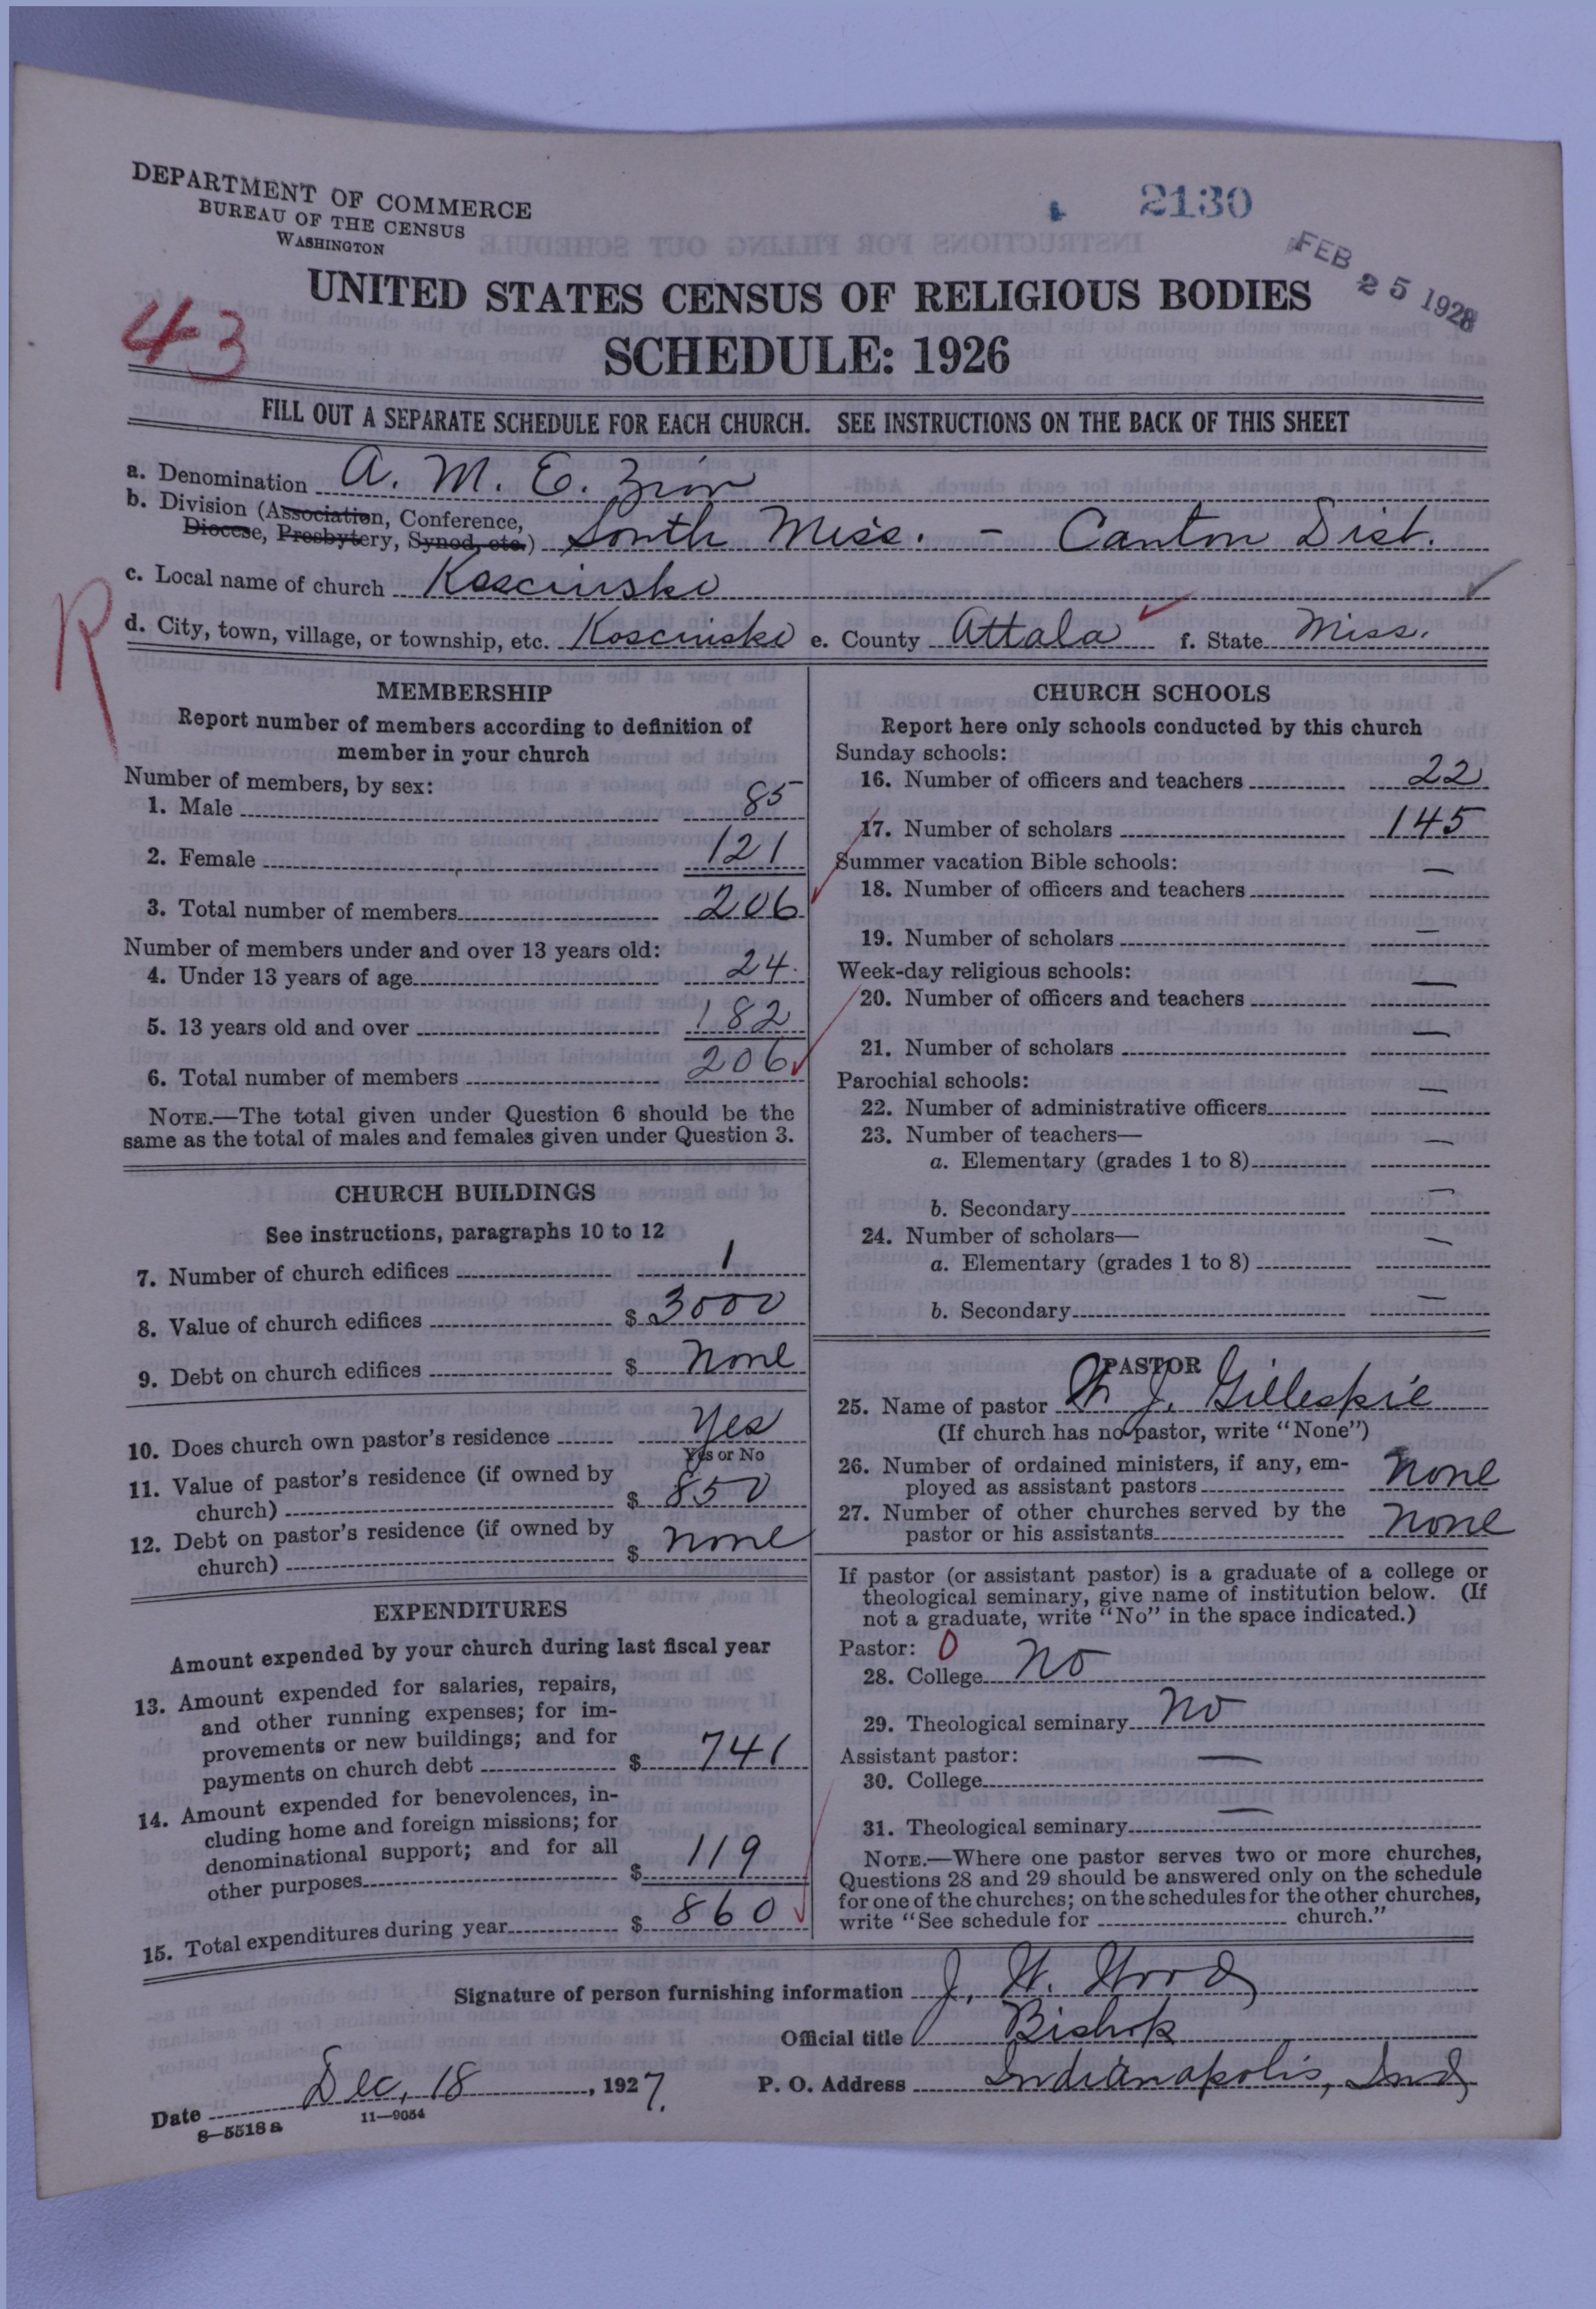 DEPARTMENT OF COMMERCE
BUREAU OF THE CENSUS
WASHINGTON
2130
FEB 25 1928
UNITED STATES CENSUS OF RELIGIOUS BODIES
43
SCHEDULE: 1926
FILL OUT A SEPARATE SCHEDULE FOR EACH CHURCH. SEE INSTRUCTIONS ON THE BACK OF THIS SHEET
a. Denomination A. M. E. Zion
b. Division (Association, Conference,
Diocese, Presbytery, Synod, etc.) South Miss. - Canton Dist.
c. Local name of church Kosciusko
R
d. City, town, village, or township, etc. Kosciusko e. County Attala f. State Miss.
MEMBERSHIP
Report number of members according to definition of
member in your church
Number of members, by sex:
1. Male 85
2. Female 121
3. Total number of members 206
Number of members under and over 13 years old:
4. Under 13 years of age 24
5. 13 years old and over 182
6. Total number of members 206
NOTE.—The total given under Question 6 should be the
same as the total of males and females given under Question 3.
CHURCH BUILDINGS
See instructions, paragraphs 10 to 12
7. Number of church edifices 1
8. Value of church edifices $ 3000
9. Debt on church edifices $ none
10. Does church own pastor's residence Yes
Yes or No
11. Value of pastor's residence (if owned by
church) $ 850
12. Debt on pastor's residence (if owned by
church) $ none
EXPENDITURES
Amount expended by your church during last fiscal year
13. Amount expended for salaries, repairs,
and other running expenses; for im-
provements or new buildings; and for
payments on church debt $ 741
14. Amount expended for benevolences, in-
cluding home and foreign missions; for
denominational support; and for all
other purposes $ 119
15. Total expenditures during year $ 860
CHURCH SCHOOLS
Report here only schools conducted by this church
Sunday schools:
16. Number of officers and teachers 22
17. Number of scholars 145
Summer vacation Bible schools:
18. Number of officers and teachers —
19. Number of scholars —
Week-day religious schools:
20. Number of officers and teachers —
21. Number of scholars —
Parochial schools:
22. Number of administrative officers —
23. Number of teachers—
a. Elementary (grades 1 to 8) —
b. Secondary —
24. Number of scholars—
a. Elementary (grades 1 to 8) —
b. Secondary —
PASTOR
25. Name of pastor J. Gillespie
(If church has no pastor, write "None")
26. Number of ordained ministers, if any, em-
ployed as assistant pastors none
27. Number of other churches served by the
pastor or his assistants none
If pastor (or assistant pastor) is a graduate of a college or
theological seminary, give name of institution below. (If
not a graduate, write "No" in the space indicated.)
Pastor: 0
28. College no
29. Theological seminary no
Assistant pastor:
30. College —
31. Theological seminary —
NOTE.—Where one pastor serves two or more churches,
Questions 28 and 29 should be answered only on the schedule
for one of the churches; on the schedules for the other churches,
write "See schedule for church."
Signature of person furnishing information J. W. Wood
Official title Bishop
Date Dec, 18, 1927. P. O. Address Indianapolis, Ind
8—5518 a 11—9054